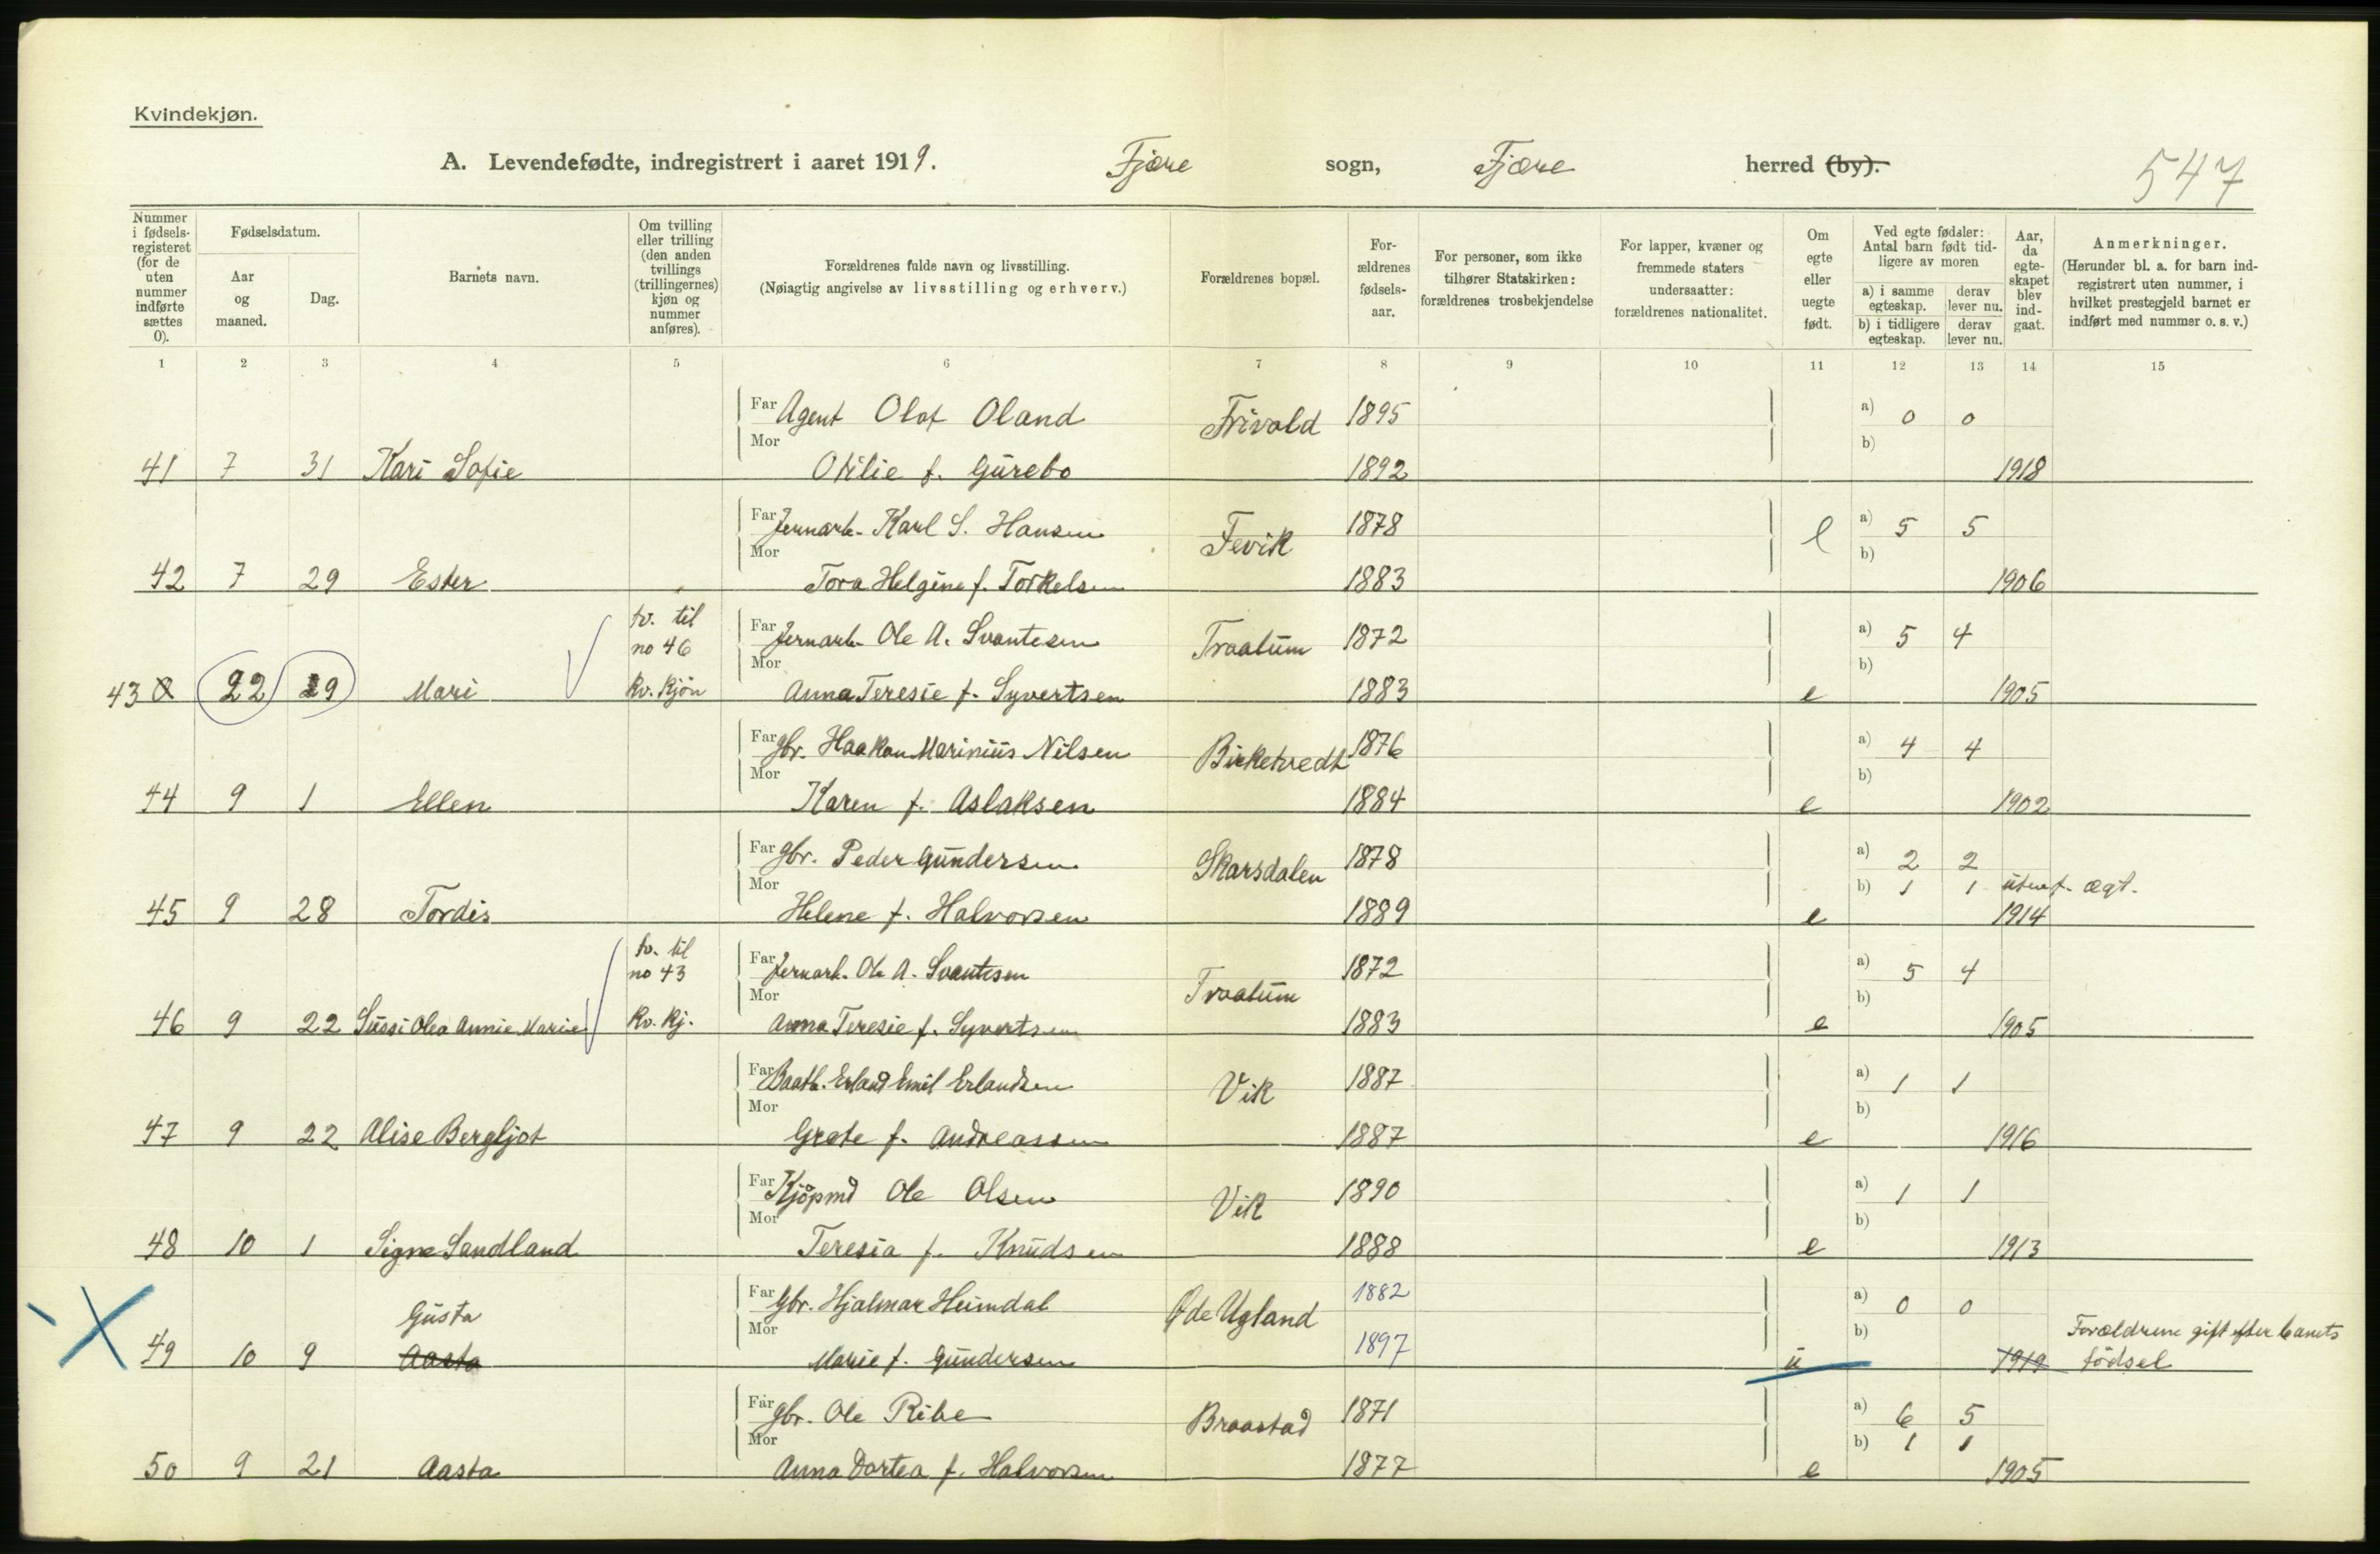 Kvindekjøn.
A. Levendefødte, indregistrert i aaret 1919. Fjære sogn, Fjære herred (by). 547
Nummer i fødsels-registeret (for de uten nummer indførte sættes 0).
Fødselsdatum.
Aar og maaned.
Dag.
Barnets navn.
Om tvilling eller trilling (den anden tvillings (trillingernes) kjøn og nummer anføres).
Forældrenes fulde navn og livsstilling.
(Nøiagtig angivelse av livsstilling og erhverv.)
Forældrenes bopæl.
For-ældrenes fødsels-aar.
For personer, som ikke tilhører Statskirken: forældrenes trosbekjendelse
For lapper, kvæner og fremmede staters undersaatter: forældrenes nationalitet.
Om egte eller uegte født.
Ved egte fødsler: Antal barn født tid-ligere av moren
a) i samme egteskap. derav lever nu.
b) i tidligere egteskap. derav lever nu.
Aar, da egte-skapet blev ind-gaat.
Anmerkninger.
(Herunder bl. a. for barn ind-registrert uten nummer, i hvilket prestegjeld barnet er indført med nummer o. s. v.)
1 2 3 4 5 6 7 8 9 10 11 12 13 14 15
Far Agent Olaf Oland Frivold 1895 a) 0 0
Mor b)
41 7 31 Kari Sofie Otilie f. Gurebo 1892 1918
Far Jernarb. Karl S. Hansen Fevik 1878 e a) 5 5
Mor b)
42 7 29 Ester Tora Helgine f. Torkelsen 1883 1906
tv. til
no 46 Far Jernarb. Ole A. Svantesen Traalum 1872 a) 5 4
Mor b)
43 0 22 29 Mari kv. kjøn Anna Teresie f. Syvertsen 1883 e 1905
Far Gbr. Haakon Marinius Nilsen Birketvedt 1876 a) 4 4
Mor b)
44 9 1 Ellen Karen f. Aslaksen 1884 e 1902
Far Gbr. Peder Gundersen Skarsdalen 1878 a) 2 2
Mor b) 1 1 utenf. ægt.
45 9 28 Tordis Helene f. Halvorsen 1889 e 1914
tv. til
no 43 Far Jernarb. Ole A. Svantesen Traalum 1872 a) 5 4
Mor b)
46 9 22 Sussi Olea Annie Marie kv. kj. Anna Teresie f. Syvertsen 1883 e 1905
Far Baatb. Erland Emil Erlandsen Vik 1887 a) 1 1
Mor b)
47 9 22 Alise Bergljot Grete f. Andreassen 1887 e 1916
Far Kjøpmd Ole Olsen Vik 1890 a) 1 1
Mor b)
48 10 1 Signe Sandland Teresia f. Knudsen 1888 e 1913
Far Gbr. Hjalmar Heimdal Øde Ugland 1882 a) 0 0
Gusta Mor b) Forældrene gift efter barnets
49 10 9 Aasta Marie f. Gundersen 1897 u 1919 fødsel
Far Gbr. Ole Ribe Braastad 1871 a) 6 5
Mor b) 1 1
50 9 21 Aasta Anna Dortea f. Halvorsen 1877 e 1905